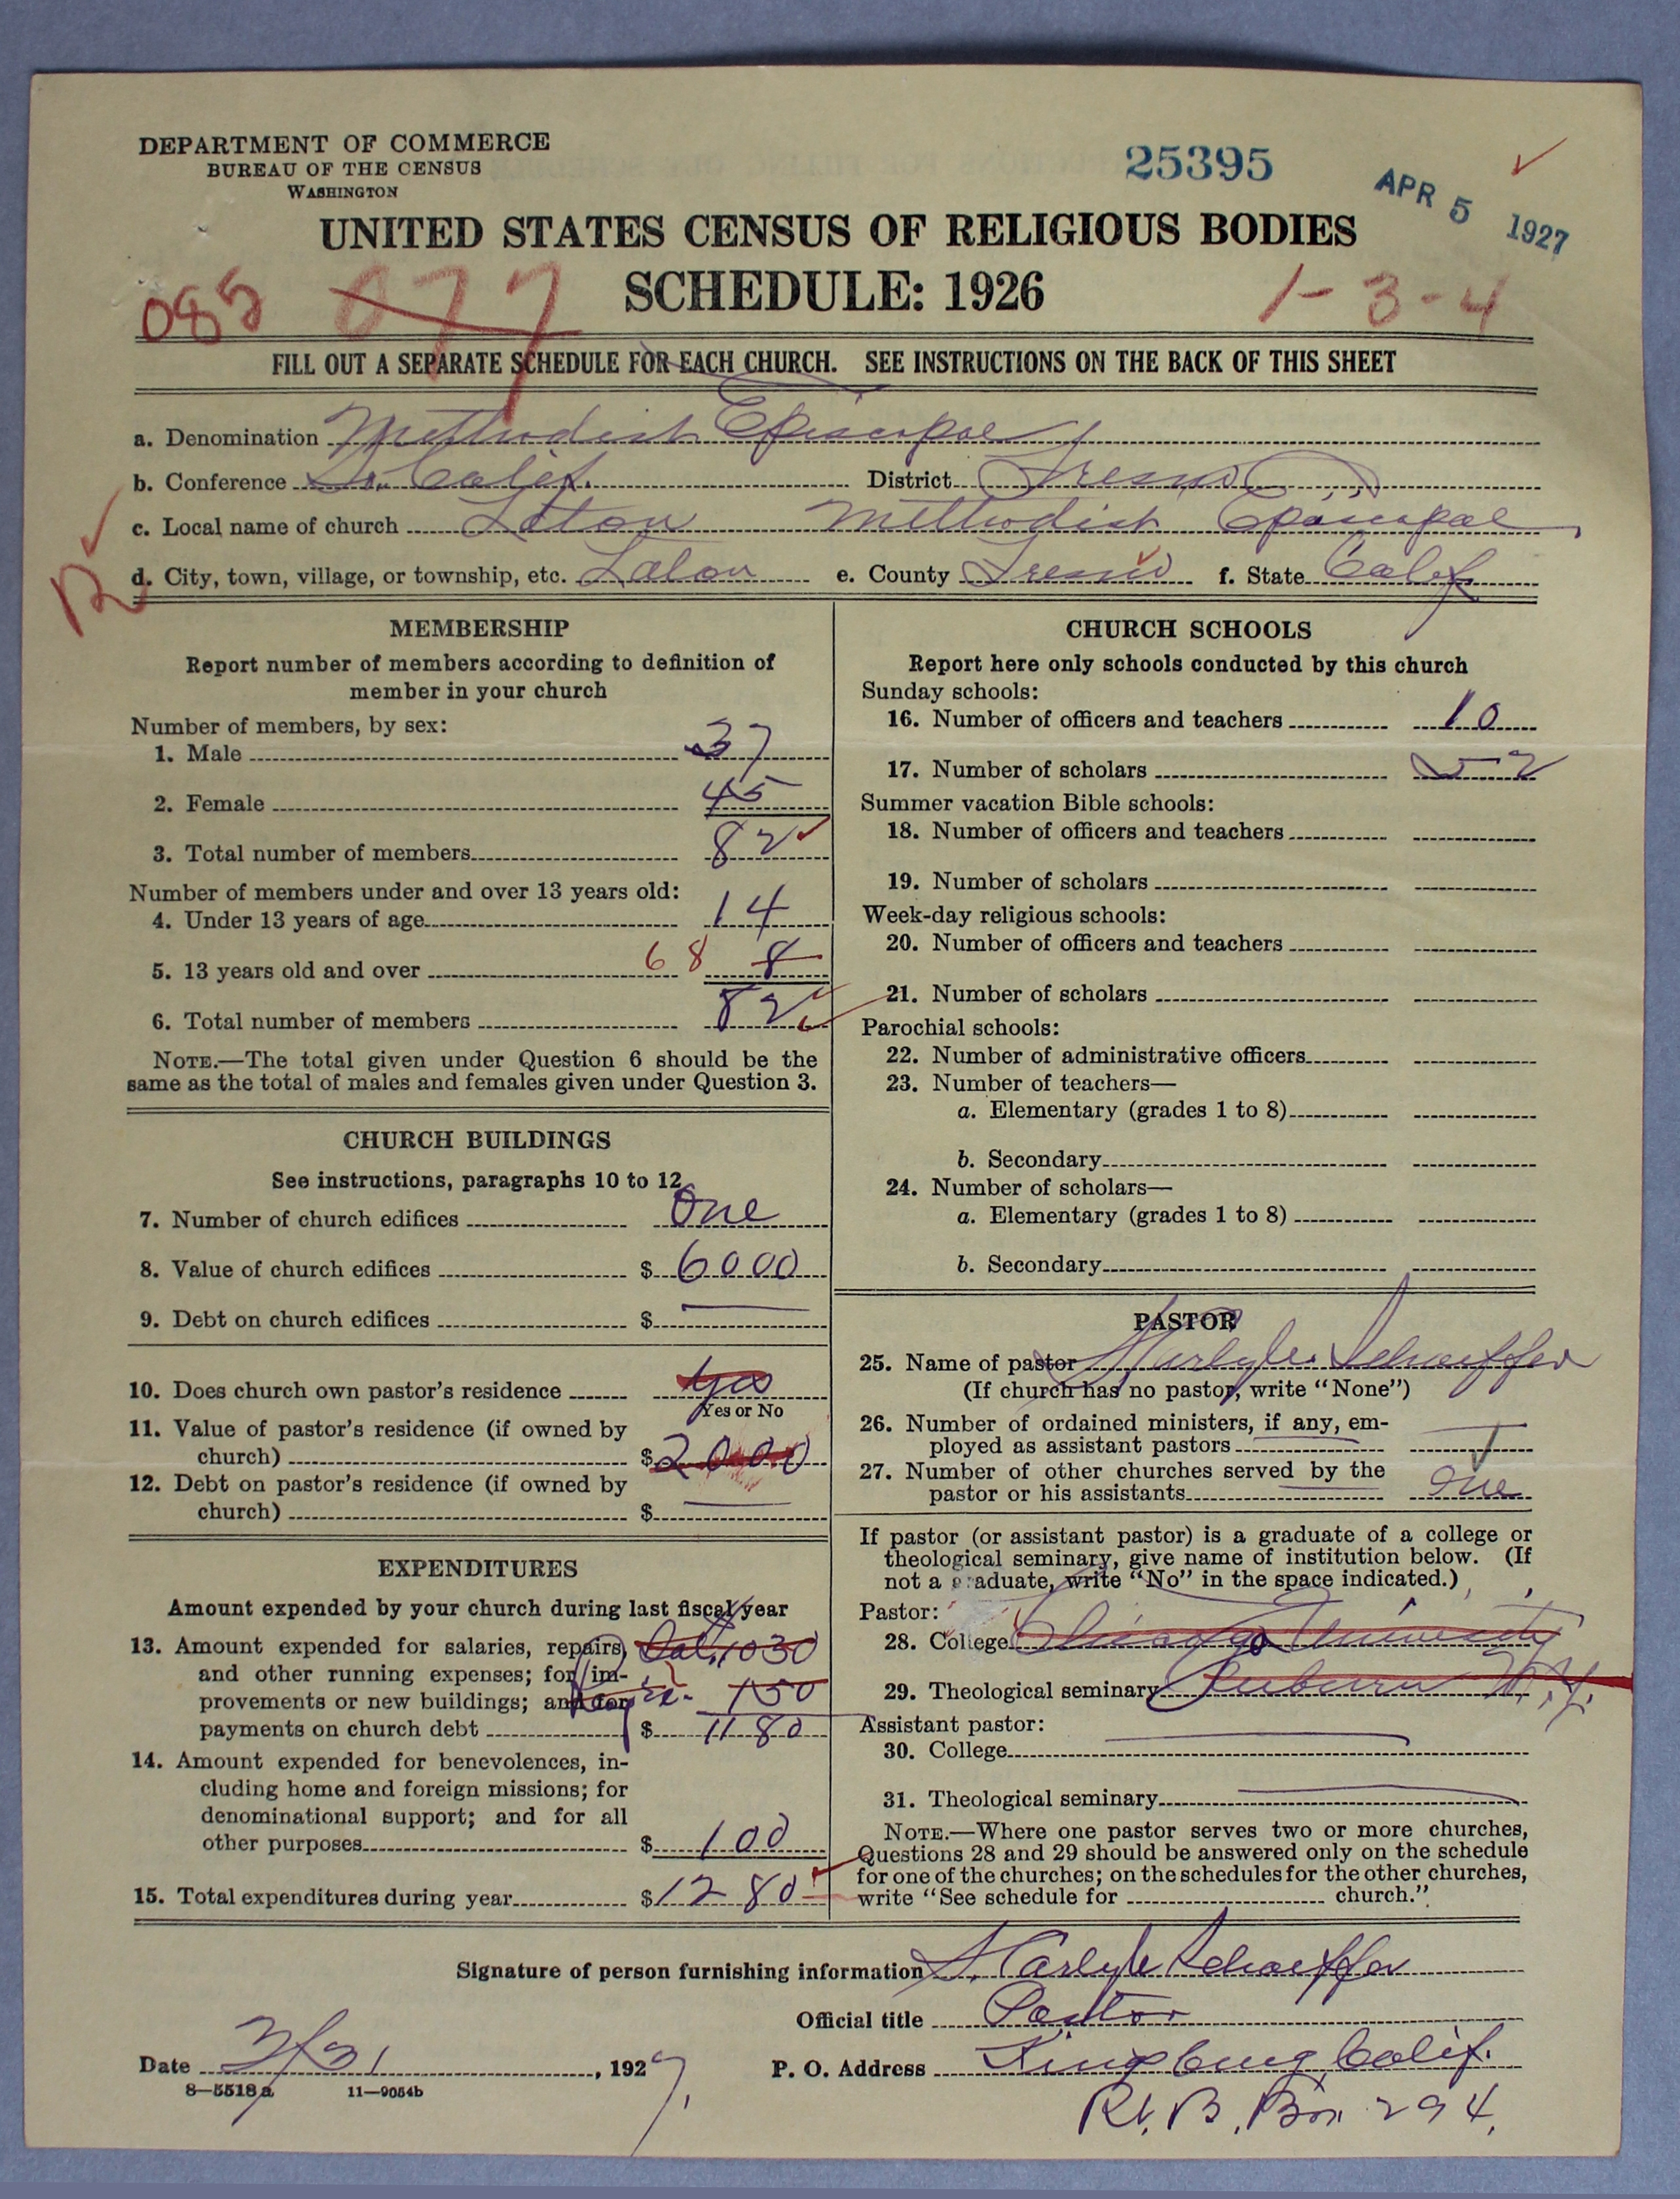 DEPARTMENT OF COMMERCE
BUREAU OF THE CENSUS
WASHINGTON
25395
APR 5 1927
UNITED STATES CENSUS OF RELIGIOUS BODIES
SCHEDULE: 1926
085 077
1-3-4
FILL OUT A SEPARATE SCHEDULE FOR EACH CHURCH. SEE INSTRUCTIONS ON THE BACK OF THIS SHEET
a. Denomination Methodist Episcopal
b. Conference So. Calif. District Fresno
c. Local name of church Laton Methodist Episcopal
R
d. City, town, village, or township, etc. Laton e. County Fresno f. State Calif.
MEMBERSHIP
Report number of members according to definition of
member in your church
Number of members, by sex:
1. Male 37
2. Female 45
3. Total number of members 82
Number of members under and over 13 years old:
4. Under 13 years of age 14
5. 13 years old and over 68 8
6. Total number of members 82
NOTE.—The total given under Question 6 should be the
same as the total of males and females given under Question 3.
CHURCH BUILDINGS
See instructions, paragraphs 10 to 12
7. Number of church edifices One
8. Value of church edifices $ 6000
9. Debt on church edifices $ —
10. Does church own pastor's residence Yes
Yes or No
11. Value of pastor's residence (if owned by
church) $ 2000
12. Debt on pastor's residence (if owned by
church) $ —
EXPENDITURES
Amount expended by your church during last fiscal year
13. Amount expended for salaries, repairs, Sal. 1030
and other running expenses; for im-
provements or new buildings; and for 150
payments on church debt $ 1180
14. Amount expended for benevolences, in-
cluding home and foreign missions; for
denominational support; and for all
other purposes $ 100
15. Total expenditures during year $ 1280
CHURCH SCHOOLS
Report here only schools conducted by this church
Sunday schools:
16. Number of officers and teachers 10
17. Number of scholars 52
Summer vacation Bible schools:
18. Number of officers and teachers
19. Number of scholars
Week-day religious schools:
20. Number of officers and teachers
21. Number of scholars
Parochial schools:
22. Number of administrative officers
23. Number of teachers—
a. Elementary (grades 1 to 8)
b. Secondary
24. Number of scholars—
a. Elementary (grades 1 to 8)
b. Secondary
PASTOR
25. Name of pastor S. Carlyle Schaeffer
(If church has no pastor, write "None")
26. Number of ordained ministers, if any, em-
ployed as assistant pastors —
27. Number of other churches served by the
pastor or his assistants One
If pastor (or assistant pastor) is a graduate of a college or
theological seminary, give name of institution below. (If
not a graduate, write "No" in the space indicated.)
Pastor:
28. College Chicago University
29. Theological seminary Auburn N.Y.
Assistant pastor:
30. College —
31. Theological seminary —
NOTE.—Where one pastor serves two or more churches,
Questions 28 and 29 should be answered only on the schedule
for one of the churches; on the schedules for the other churches,
write "See schedule for church."
Signature of person furnishing information S. Carlyle Schaeffer
Official title Pastor
Date 3/31, 1927.
P. O. Address Kingsburg Calif.
Rt. B, Box 294.
8—5518a 11—9054b